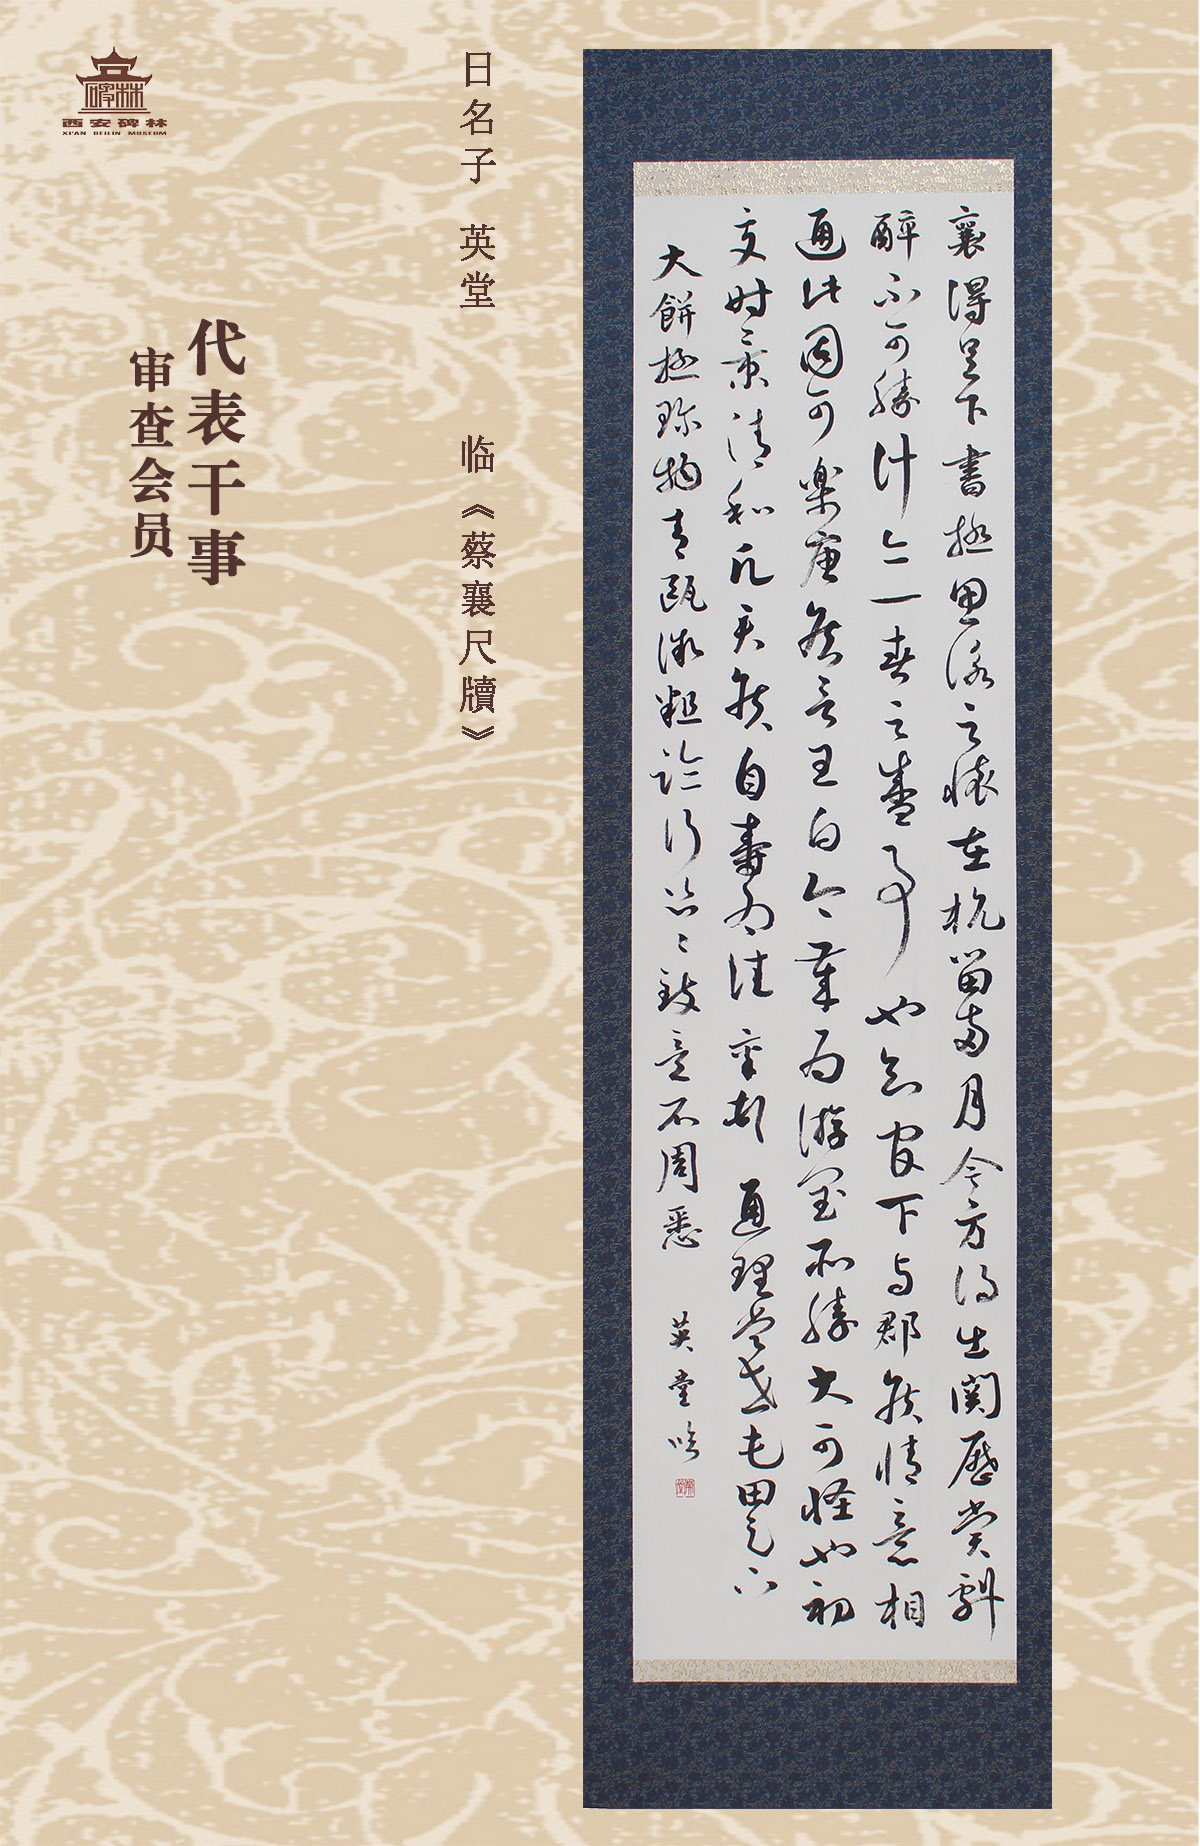 西安碑林
XI'AN BEILIN MUSEUM
代表干事
审查会员
日名子 英堂 临《蔡襄尺牍》
襄得足下書極思詠之懐在杭留兩月今方得出関歴賞劇
醉不可勝計亦一春之盛事也知官下与郡侯情意相
通此固可楽唐侯言王白今歳为游閏所勝大可怪也初
夏时景清和願君侯自壽为佳襄頓 通理當世屯田足下
大餅極珍物青甌微粗临行匆々致意不周悉 英堂临